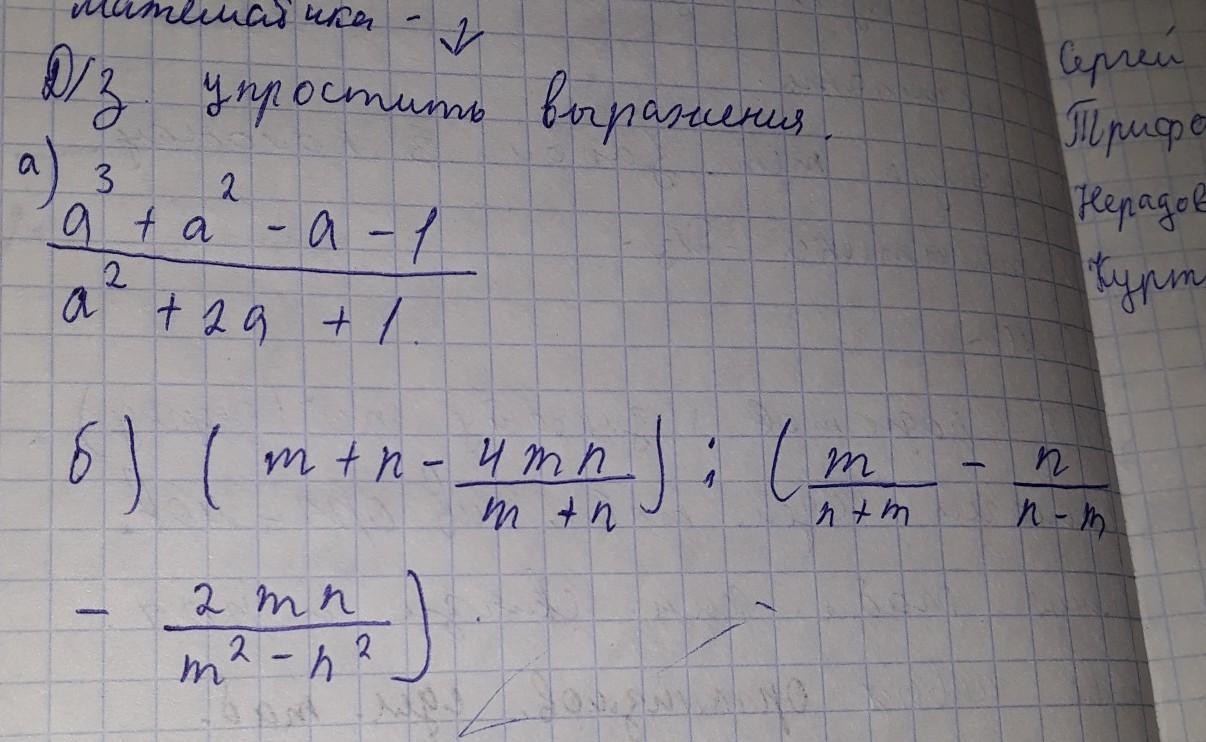 математика -
Д/з. упростить выражения.
а) (a³ + a² - a - 1) / (a² + 2a + 1).
б) ( m + n - 4mn / (m + n) ) : ( m / (n + m) - n / (n - m)
- 2mn / (m² - n²) ).
Сергей
Трифо
Нерадов
Курт